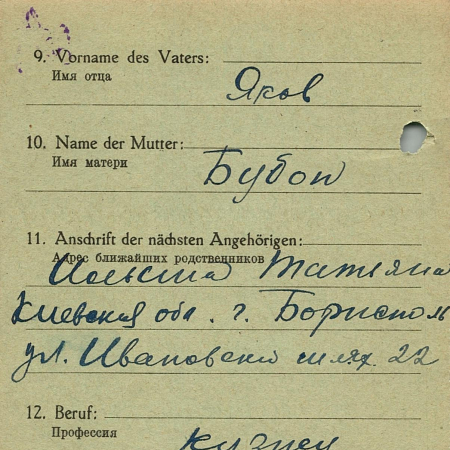 9. Vorname des Vaters:
Имя отца
Яков
10. Name der Mutter:
Имя матери
Бубон
11. Anschrift der nächsten Angehörigen:
Адрес ближайших родственников
Татяна
Киевская обл. г. Борисполь
ул. Ивановский шлях. 22
12. Beruf:
Профессия
кузнец